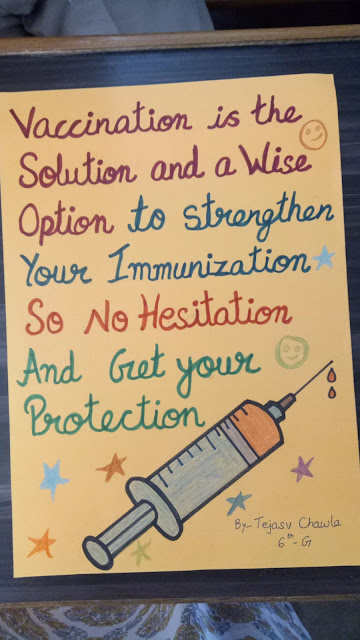 Vaccination is the
Solution and a Wise
Option to strengthen
Your Immunization
So No Hesitation
And Get your
Protection
By- Tejasv Chawla
6th - G